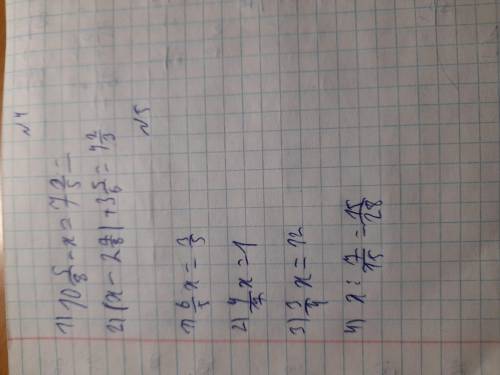 №4
1) 10 5/8 - x = 7 2/5
2) (x - 2 7/8) + 3 5/6 = 4 2/3
№5
1) 6/5 x = 3/5
2) 4/7 x = 1
3) 3/4 x = 12
4) x : 7/15 = 15/28